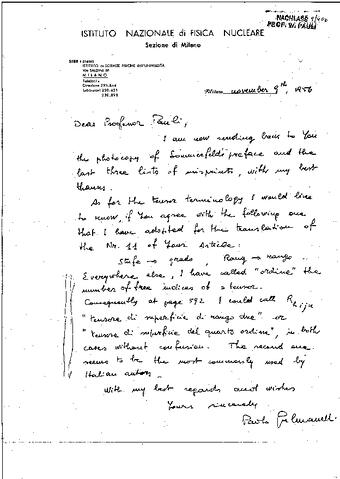 NACHLASS
PROF. W. PAULI
ISTITUTO NAZIONALE di FISICA NUCLEARE
Sezione di Milano
ISTITUTO DI SCIENZE FISICHE DELL'UNIVERSITÀ
MILANO
Milano, november 9th, 1956
Dear Professor Pauli,
I am now sending back to You
the photocopy of Sommerfeld's preface and the
last three lists of misprints, with my best
thanks.
As for the tensor terminology I would like
to know, if You agree with the following one
that I have adopted for the translation of
the Nr. 11 of Your Article:
Stufe → grado, Rang → rango.
Everywhere else, I have called "ordine" the
number of free indices of a tensor.
Consequently at page 592 I could call R hijk
"tensore di superficie di rango due" or
"tensore di superficie del quarto ordine", in both
cases without confusion. The second one
seems to be the most commonly used by
Italian autors.
With my best regards and wishes
Yours sincerely
Paolo